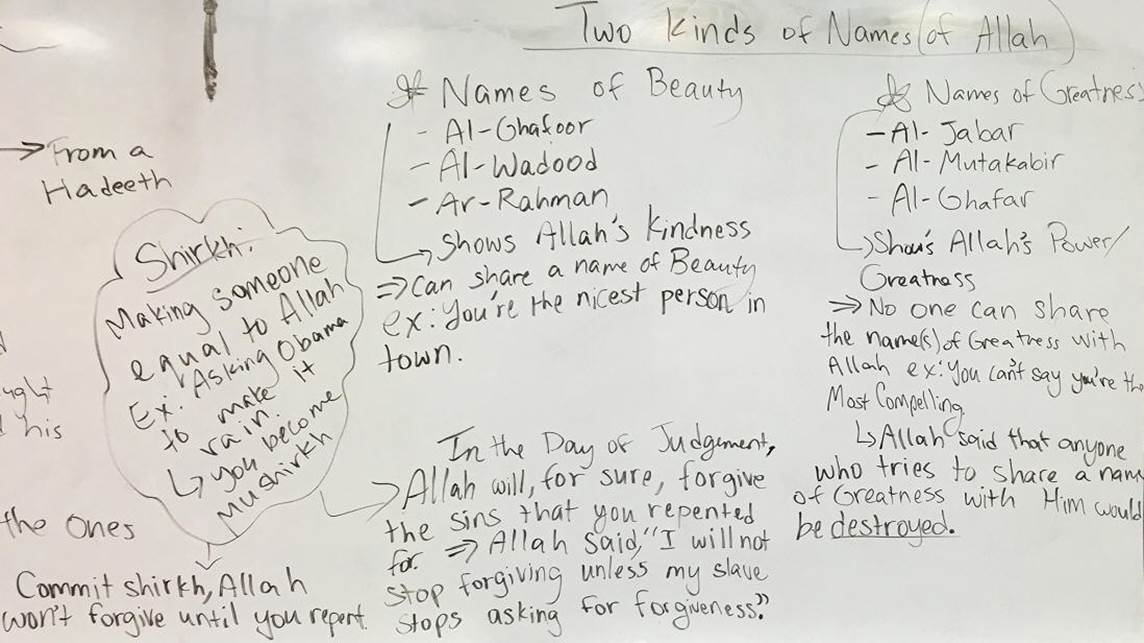 Two Kinds of Names (of Allah)
From a
Hadeeth
Shirkh:
Making someone
equal to Allah
Ex: Asking Obama
to make it
rain.
you become
Mushirkh
ught
his
the Ones
Commit shirkh, Allah
won't forgive until you repent.
Names of Beauty
- Al-Ghafoor
- Al-Wadood
- Ar-Rahman
Shows Allah's Kindness
⇒ Can share a name of Beauty
ex: You're the nicest person in
town.
In the Day of Judgement,
Allah will, for sure, forgive
the sins that you repented
for. ⇒ Allah said, "I will not
stop forgiving unless my slave
stops asking for forgiveness."
Names of Greatness
- Al-Jabar
- Al-Mutakabir
- Al-Ghafar
Shows Allah's Power/
Greatness
⇒ No one can share
the name(s) of Greatness with
Allah ex: You can't say you're the
Most Compelling.
↳ Allah said that anyone
who tries to share a name
of Greatness with Him would
be destroyed.